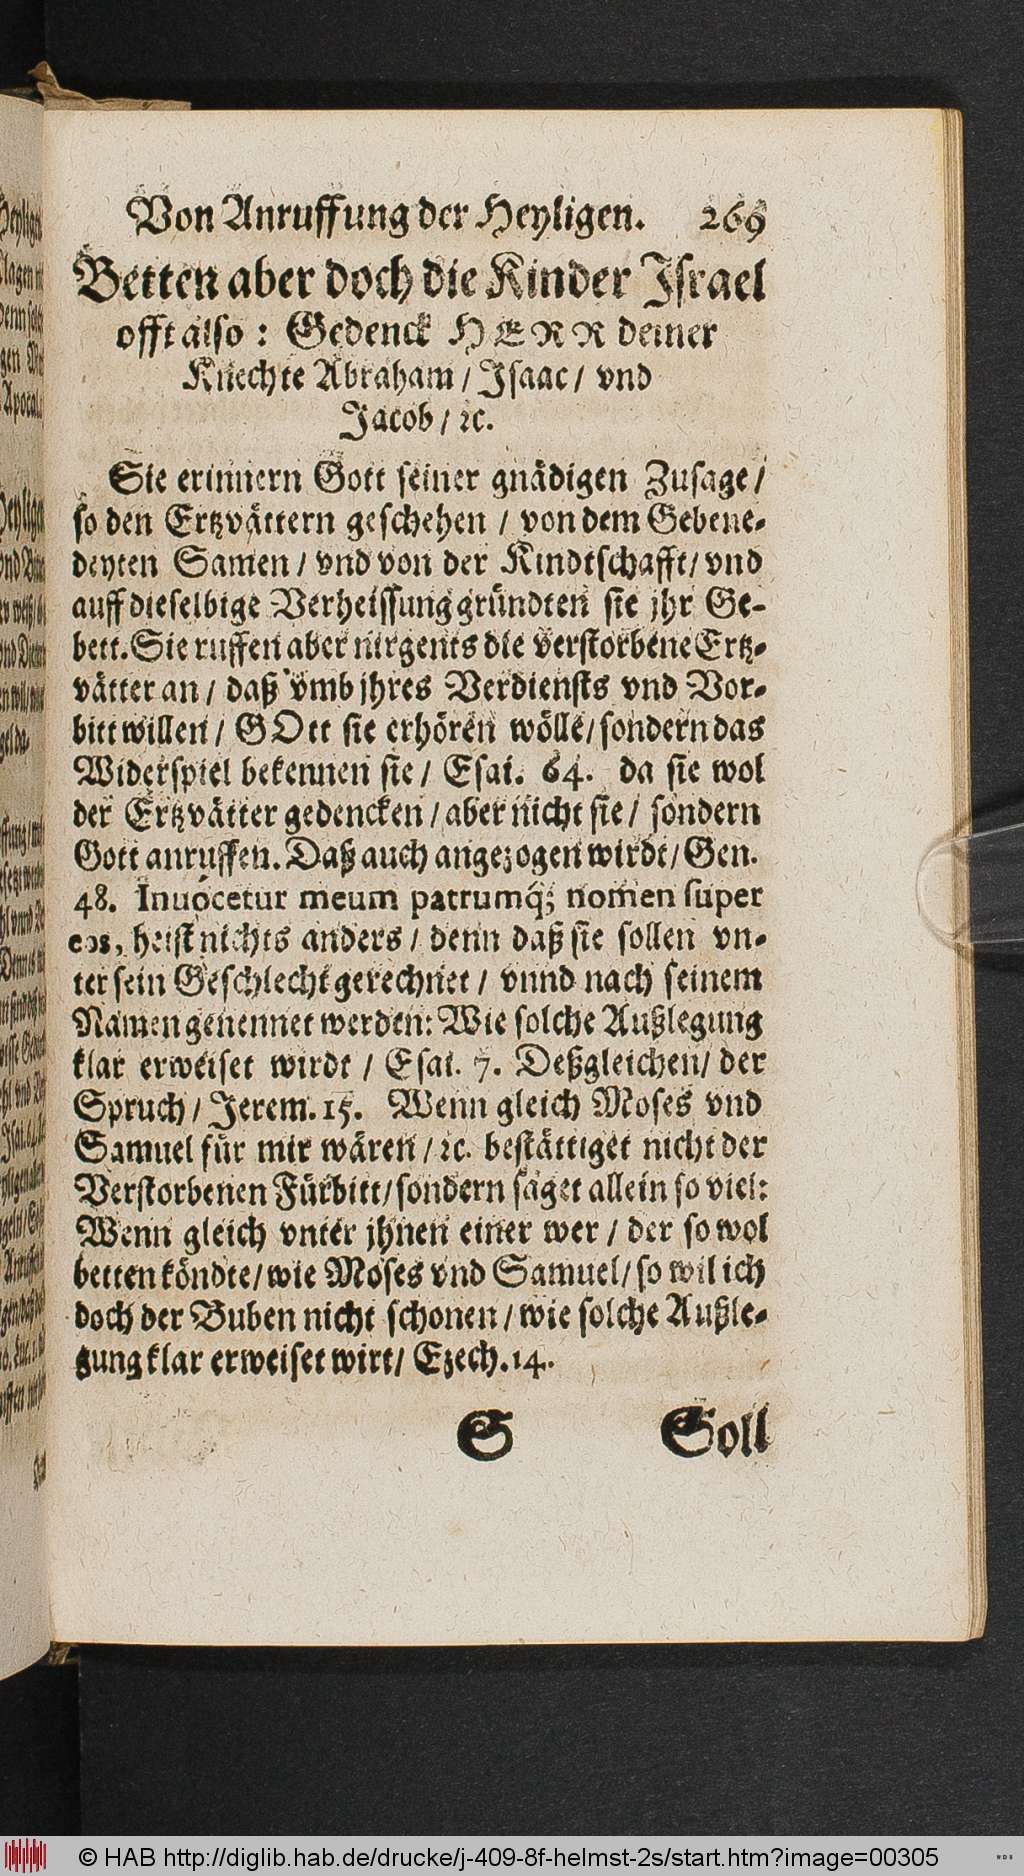 Von Anruffung der Heyligen. 269
Betten aber doch die Kinder Israel
offt also : Gedenck HERR deiner
Knechte Abraham / Isaac / vnd
Jacob / ꝛc.
Sie erinnern Gott seiner gnädigen Zusage /
so den Ertzvättern geschehen / von dem Gebene-
deyten Samen / vnd von der Kindtschafft / vnd
auff dieselbige Verheissung gründten sie jhr Ge-
bett. Sie ruffen aber nirgents die verstorbene Ertz-
vätter an / daß vmb jhres Verdiensts vnd Vor-
bitt willen / GOtt sie erhören wölle / sondern das
Widerspiel bekennen sie / Esai. 64. da sie wol
der Ertzvätter gedencken / aber nicht sie / sondern
Gott anruffen. Daß auch angezogen wirdt / Gen.
48. Inuócetur meum patrumq́; nomen super
eos, heist nichts anders / denn daß sie sollen vn-
ter sein Geschlecht gerechnet / vnnd nach seinem
Namen genennet werden: Wie solche Außlegung
klar erweiset wirdt / Esai. 7. Deßgleichen / der
Spruch / Jerem. 15. Wenn gleich Moses vnd
Samuel für mir wären / ꝛc. bestättiget nicht der
Verstorbenen Fürbitt / sondern saget allein so viel:
Wenn gleich vnter jhnen einer wer / der so wol
betten köndte / wie Moses vnd Samuel / so wil ich
doch der Buben nicht schonen / wie solche Außle-
gung klar erweiset wirt / Ezech. 14.
S Soll
© HAB http://diglib.hab.de/drucke/j-409-8f-helmst-2s/start.htm?image=00305